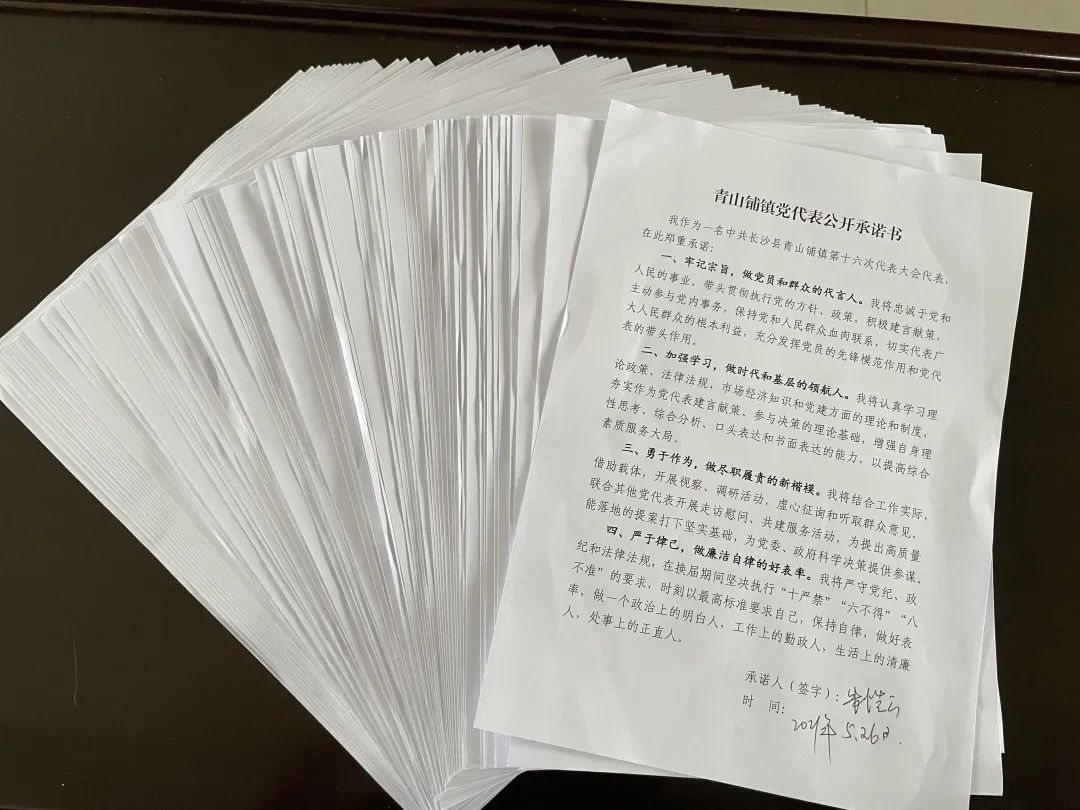 青山铺镇党代表公开承诺书
我作为一名中共长沙县青山铺镇第十六次代表大会代表，
在此郑重承诺：
一、牢记宗旨，做党员和群众的代言人。我将忠诚于党和
人民的事业，带头贯彻执行党的方针、政策，积极建言献策，
主动参与党内事务，保持党和人民群众血肉联系，切实代表广
大人民群众的根本利益，充分发挥党员的先锋模范作用和党代
表的带头作用。
二、加强学习，做时代和基层的领航人。我将认真学习理
论政策、法律法规、市场经济知识和党建方面的理论和制度，
夯实作为党代表建言献策、参与决策的理论基础，增强自身理
性思考、综合分析、口头表达和书面表达的能力，以提高综合
素质服务大局。
三、勇于作为，做尽职履责的新楷模。我将结合工作实际，
借助载体，开展视察、调研活动，虚心征询和听取群众意见，
联合其他党代表开展走访慰问、共建服务活动，为提出高质量
能落地的提案打下坚实基础，为党委、政府科学决策提供参谋。
四、严于律己，做廉洁自律的好表率。我将严守党纪、政
纪和法律法规，在换届期间坚决执行“十严禁”“六不得”“八
不准”的要求，时刻以最高标准要求自己，保持自律，做好表
率，做一个政治上的明白人，工作上的勤政人，生活上的清廉
人，处事上的正直人。
承诺人（签字）：
时 间：2021年5.26日.